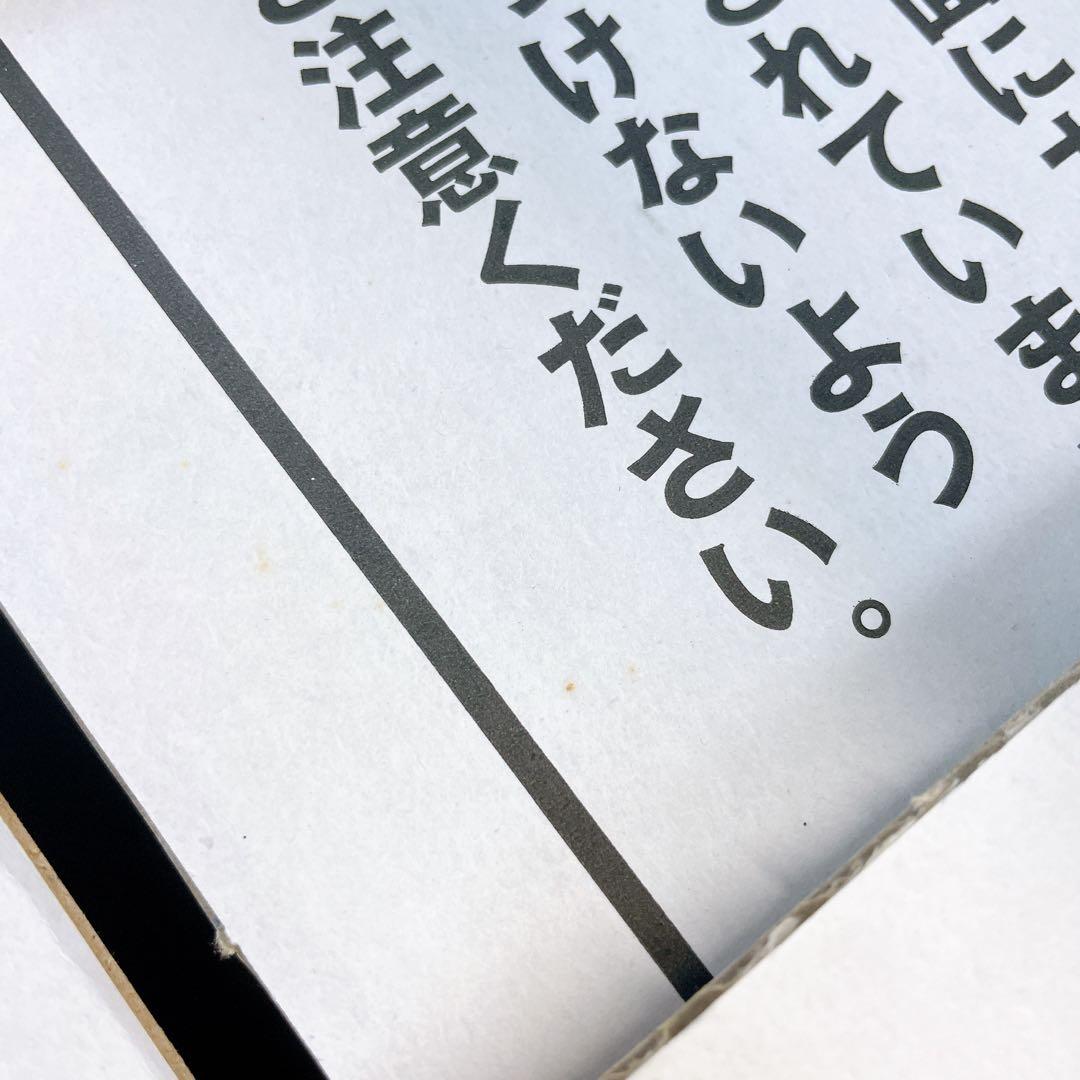 に
れていま
けないよう
注意ください。